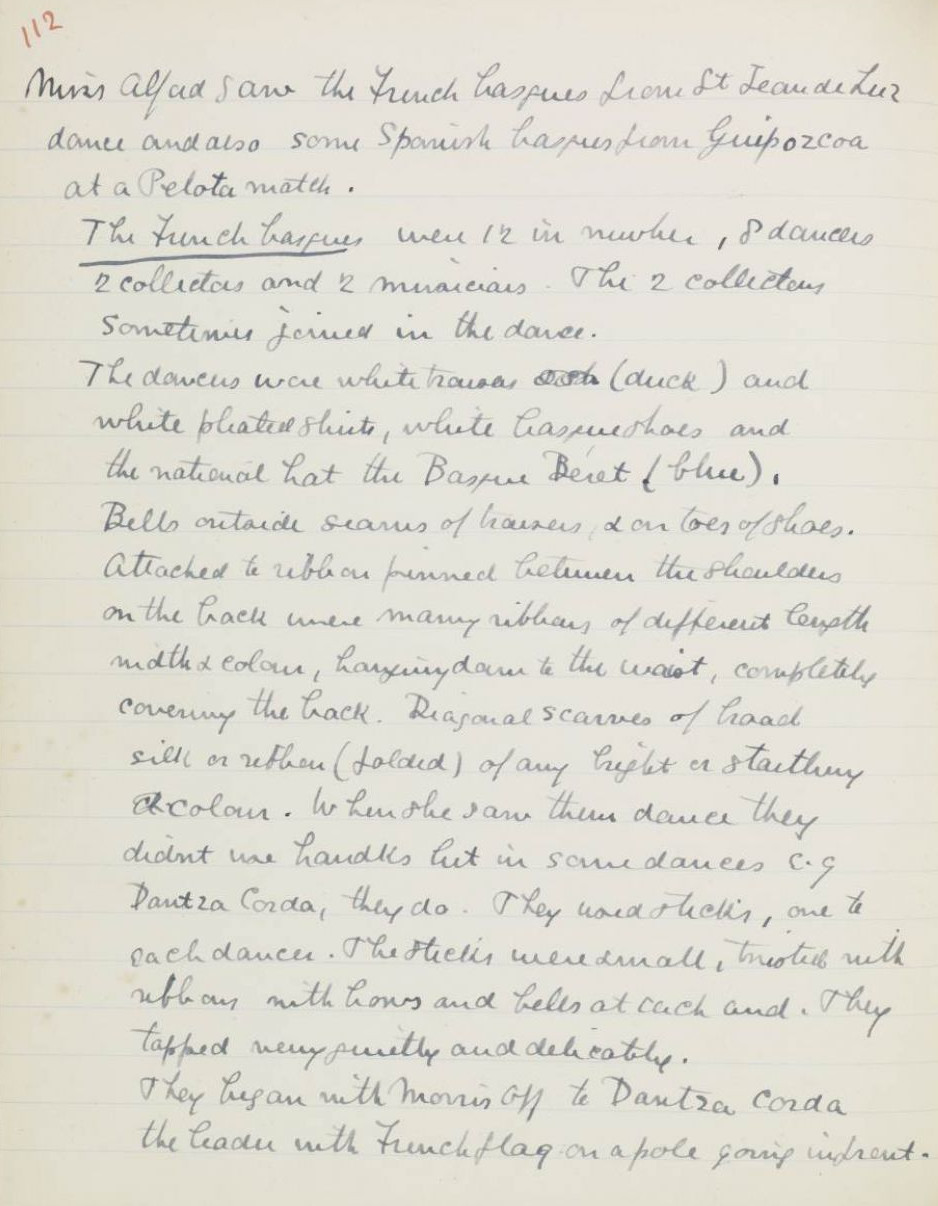 112
Miss Alford saw the French basques from St Jean de Luz
dance and also some Spanish basques from Guipozcoa
at a Pelota match.
The French basques were 12 in number, 8 dancers
2 collectors and 2 musicians. The 2 collectors
sometimes joined in the dance.
The dancers wore white trousers (duck) and
white pleated shirts, white basque shoes and
the national hat the Basque Béret (blue).
Bells outside seams of trousers, & on toes of shoes.
Attached to ribbon pinned between the shoulders
on the back were many ribbons of different length
width & colour, hanging down to the waist, completely
covering the back. Diagonal scarves of broad
silk or ribbon (folded) of any bright or startling
colour. When she saw them dance they
didnt use handks but in some dances e.g
Dantza Corda, they do. They used sticks, one to
each dancer. The sticks were small, twisted with
ribbons with bows and bells at each end. They
tapped very quietly and delicately.
They began with Morris Off to Dantza Corda
the leader with French flag on a pole going in front.